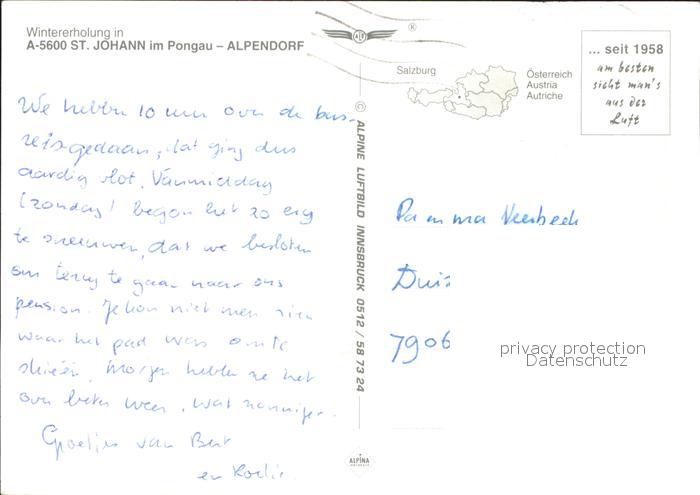 Wintererholung in
A-5600 ST. JOHANN im Pongau – ALPENDORF
®
... seit 1958
am besten
sieht man's
aus der
Luft
Salzburg
Österreich
Austria
Autriche
© ALPINE LUFTBILD INNSBRUCK 0512 / 58 73 24
We hebben 10 uur over de bus-
reis gedaan, dat ging dus
aardig vlot. Vanmiddag
(zondag) begon het zo erg
te sneeuwen, dat we besloten
om terug te gaan naar ons
pension. Je kon niet meer zien
waar het pad was om te
skieën. Morgen hebben ze het
over beter weer, wat zonniger.
Groetjes van Bert
en
Pa en ma Veerbeek
7906
privacy protection
Datenschutz
ALPINA